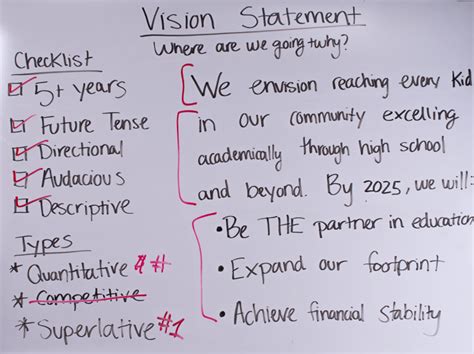 Vision Statement
Where are we going & why?
Checklist
5+ years
Future Tense
Directional
Audacious
Descriptive
Types
* Quantitative $ #
* Competitive
* Superlative #1
We envision reaching every kid
in our community excelling
academically through high school
and beyond. By 2025, we will:
• Be THE partner in education
• Expand our footprint
• Achieve financial stability